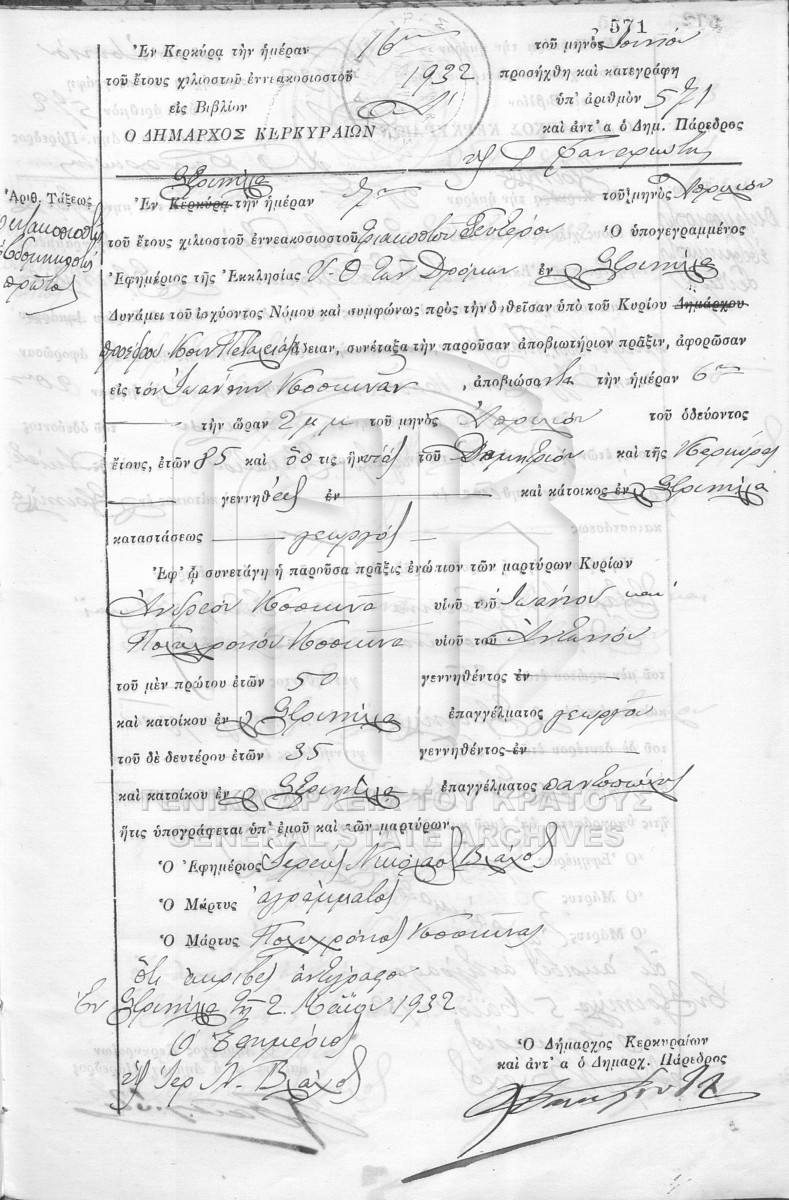 571
Ἐν Κερκύρᾳ τὴν ἡμέραν 16ην τοῦ μηνὸς Ἰουνίου
τοῦ ἔτους χιλιοστοῦ ἐννεακοσιοστοῦ 1932 προσήχθη καὶ κατεγράφη
εἰς Βιβλίον Α' ὑπ' ἀριθμὸν 571
Ο ΔΗΜΑΡΧΟΣ ΚΕΡΚΥΡΑΙΩΝ καὶ ἀντ' α ὁ Δημ. Πάρεδρος
Ἀριθ. Τάξεως
ἑξακοσιοστὸς
ἑβδομηκοστὸς
πρῶτος
Στρινήλα
Ἐν Κερκύρᾳ τὴν ἡμέραν 7ην τοῦ μηνὸς Ἀπριλίου
τοῦ ἔτους χιλιοστοῦ ἐννεακοσιοστοῦ τριακοστοῦ δευτέρου Ὁ ὑπογεγραμμένος
Ἐφημέριος τῆς Ἐκκλησίας Υ. Θ. τῶν Βρόμων ἐν Στρινήλα
Δυνάμει τοῦ ἰσχύοντος Νόμου καὶ συμφώνως πρὸς τὴν δοθεῖσαν ὑπὸ τοῦ Κυρίου Δημάρχου
προέδρου Κοιν. Πεταλείας ἄδειαν, συνέταξα τὴν παροῦσαν ἀποβιωτήριον πρᾶξιν, ἀφορῶσαν
εἰς τὸν Ἰωάννην Κοσκινᾶν, ἀποβιώσαντα τὴν ἡμέραν 6ην
τὴν ὥραν 2 μ μ τοῦ μηνὸς Ἀπριλίου τοῦ ὁδεύοντος
ἔτους, ἐτῶν 85 καὶ ὅς τις ἦν υἱὸς τοῦ Δημητρίου καὶ τῆς Κερκύρας
γεννηθεὶς ἐν καὶ κάτοικος ἐν Στρινήλα
καταστάσεως γεωργὸς
Ἐφ' ᾧ συνετάγη ἡ παροῦσα πρᾶξις ἐνώπιον τῶν μαρτύρων Κυρίων
Ἀνδρέου Κοσκινᾶ υἱοῦ τοῦ Ἰωάννου καὶ
Πολυχρονίου Κοσκινᾶ υἱοῦ τοῦ Ἀντωνίου
τοῦ μὲν πρώτου ἐτῶν 50 γεννηθέντος ἐν
καὶ κατοίκου ἐν Στρινήλα ἐπαγγέλματος γεωργοῦ
τοῦ δὲ δευτέρου ἐτῶν 35 γεννηθέντος ἐν
καὶ κατοίκου ἐν Στρινήλα ἐπαγγέλματος παντοπώλης
ΓΕΝΙΚΑ ΑΡΧΕΙΑ ΤΟΥ ΚΡΑΤΟΥΣ
ἥτις ὑπογράφεται ὑπ' ἐμοῦ καὶ τῶν μαρτύρων
GENERAL STATE ARCHIVES
Ὁ Ἐφημέριος Ἱερεὺς Νικόλαος Βλάχος
Ὁ Μάρτυς ἀγράμματος
Ὁ Μάρτυς Πολυχρόνιος Κοσκινᾶς
Ὅτι ἀκριβὲς ἀντίγραφον
Ἐν Στρινήλα τῇ 2 Μαΐου 1932
Ὁ Ἐφημέριος
Ἱερ Ν. Βλάχος
Ὁ Δήμαρχος Κερκυραίων
καὶ ἀντ' α ὁ Δημαρχ. Πάρεδρος